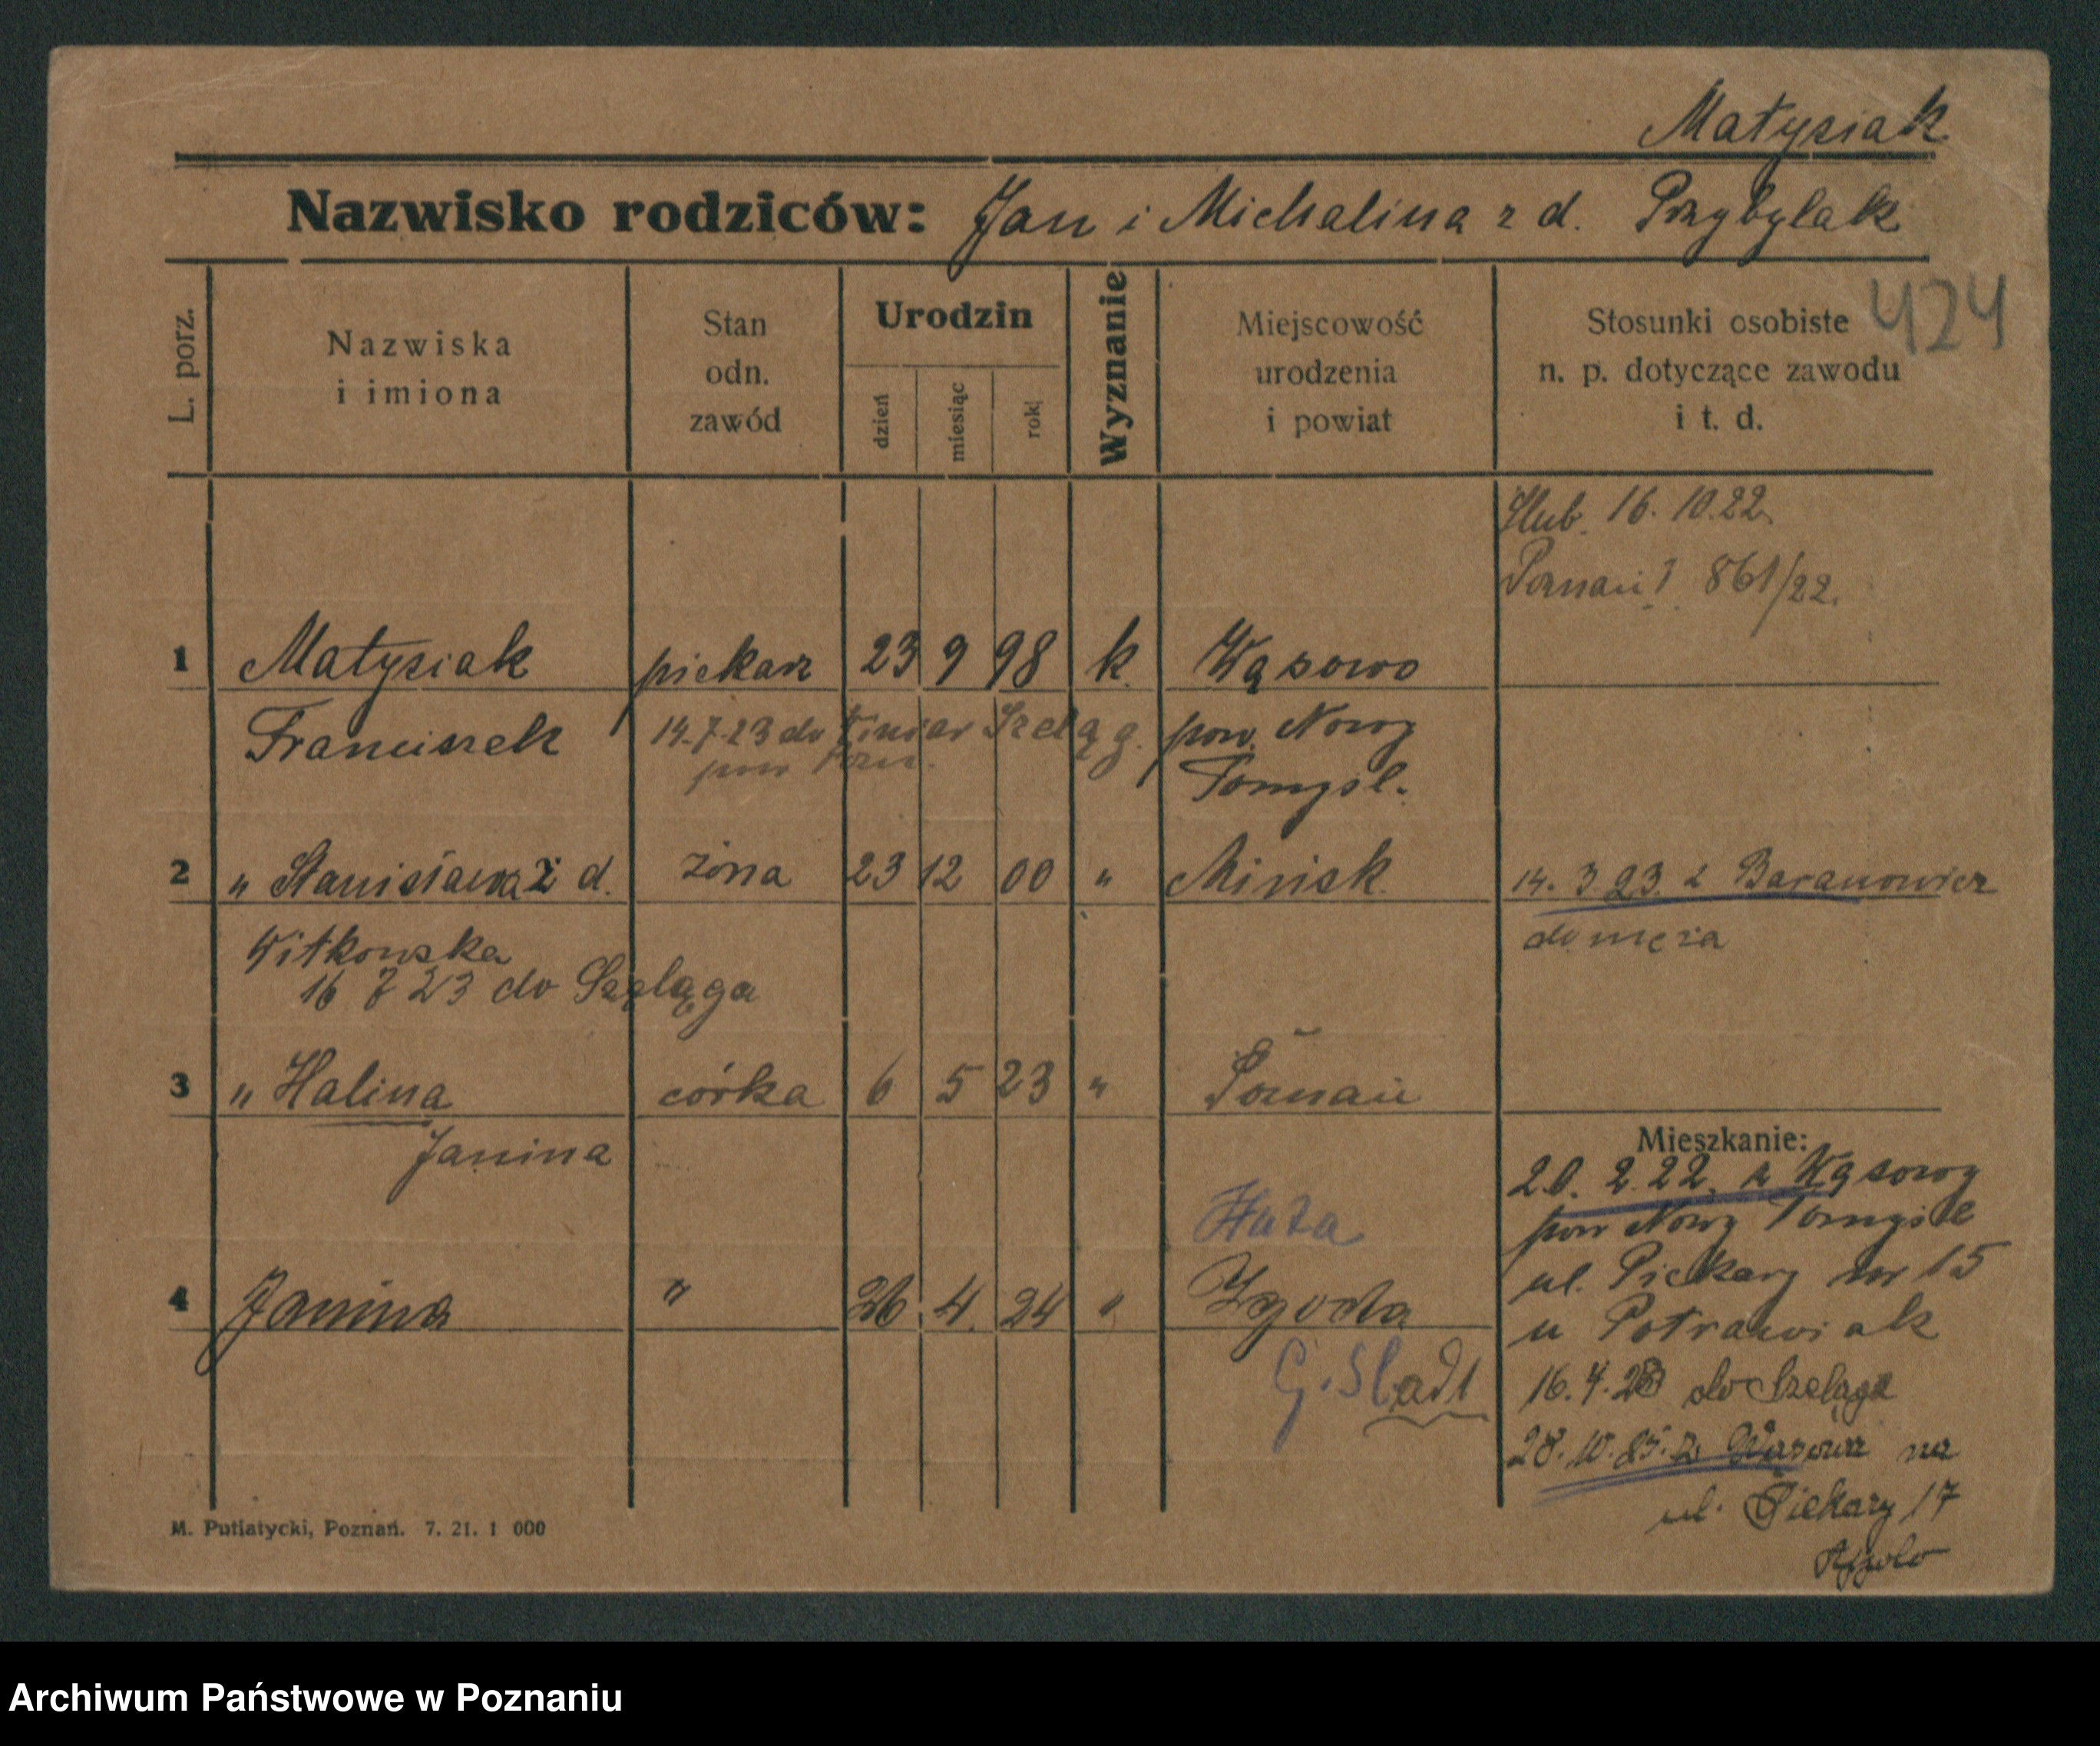 Matysiak
Nazwisko rodziców: Jan i Michalina z d. Przybylak
424
L. porz.
Nazwiska i imiona
Stan odn. zawód
Urodzin
dzień
miesiąc
rok
Wyznanie
Miejscowość urodzenia i powiat
Stosunki osobiste n. p. dotyczące zawodu i t. d.
Ślub. 16. 10. 22.
Poznań I. 861/22.
1 Matysiak piekarz 23 9 98 k. Wąsowo
Franciszek 14.7.23 do Szeląg. pow. Nowy
pow Pozn. Tomyśl.
2 „ Stanisława z d. żona 23 12 00 „ Mińsk 14. 3 23. z Baranowicz
Witkowska do męża
16 7 23 do Szeląga
3 „ Halina córka 6 5 23 „ Poznań
Janina
Mieszkanie:
20. 2. 22. z Wąsowy
pow Nowy Tomyśl
ul. Piekary nr 15
u Potrawiak
16. 7. 23 do Szeląga
28. 10. 25. z Wąsowa na
ul. Piekary 17
Apolo
Huta
4 Janina „ 26 4. 24 „ Zgoda
G. Śl
M. Putiatycki, Poznań. 7. 21. 1 000
Archiwum Państwowe w Poznaniu